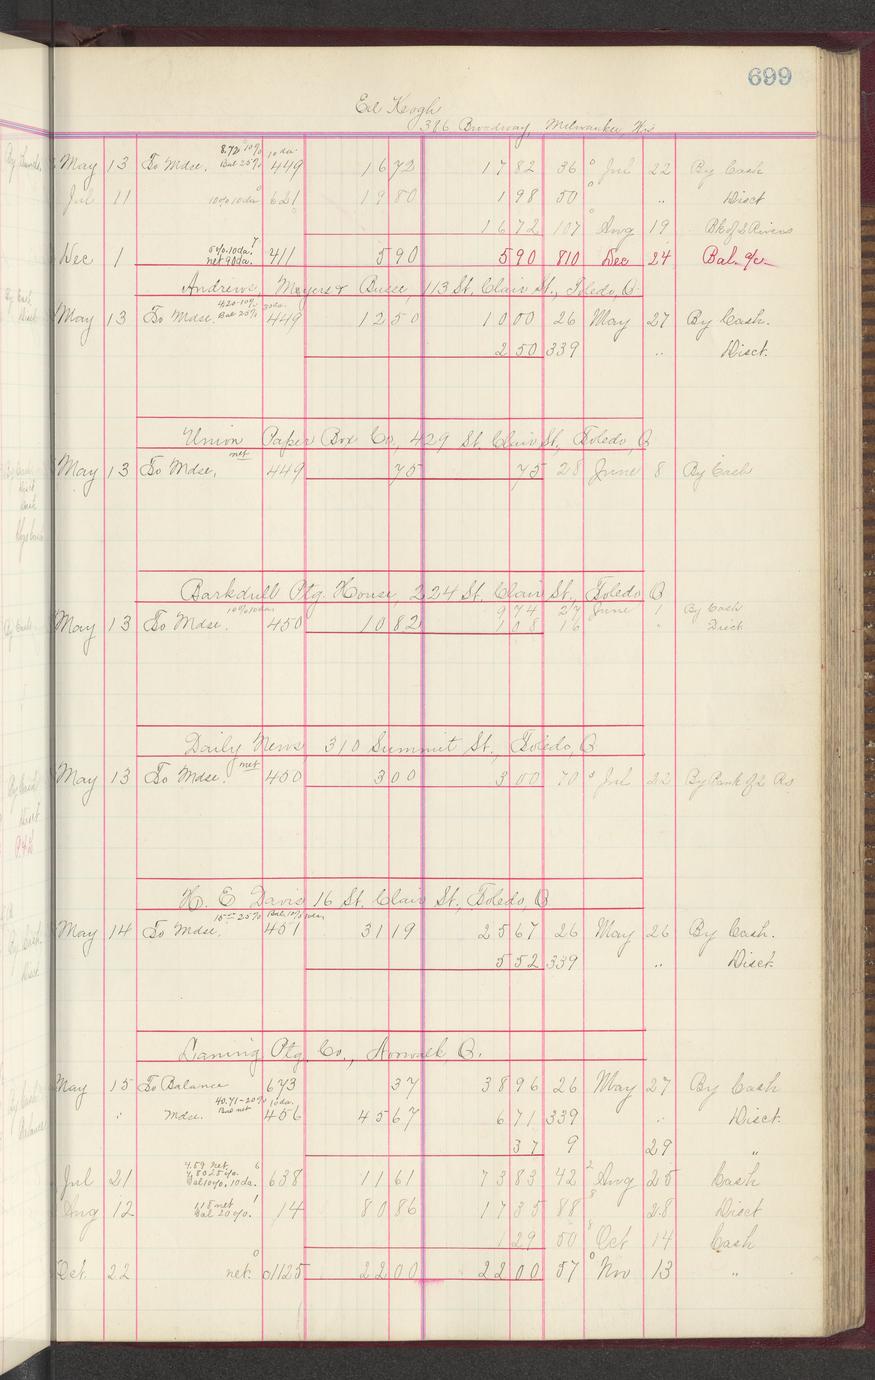 699
Ed Keogh
386 Broadway, Milwaukee, Wis
May 13 To Mdse. 8.72 10% 10 da. Bal 25% 449 16 72 17 82 36 Jul 22 By Cash
Jul 11 10% 10 da 621 19 80 1 98 50 " Disct
16 72 107 Aug 19 Bk of 2 Rivers
Dec 1 5% 10 da. net 90 da. 411 5 90 5 90 810 Dec 24 Bal. a/c
Andrews, Mayers & Buese, 113 St. Clair St., Toledo, O
May 13 To Mdse. 4.20-10% 30 da. Bal 25% 449 12 50 10 00 26 May 27 By Cash.
2 50 339 " Disct.
Union Paper Box Co, 429 St Clair St, Toledo, O
May 13 To Mdse, net 449 75 75 28 June 8 By Cash
Barkdull Ptg. House, 224 St. Clair St., Toledo O
9 74 27 June 1 By Cash
May 13 To Mdse. 10% 10 da 450 10 82 1 08 16 " Disct
Daily News 310 Summit St., Toledo, O
May 13 To Mdse. net 450 3 00 3 00 70 Jul 22 By Bank of 2 Rs
H. E Davis 16 St. Clair St., Toledo, O
May 14 To Mdse. 15 25% Bal 10% 10 da 451 31 19 25 67 26 May 26 By Cash.
5 52 339 " Disct.
Laning Ptg. Co., Norwalk, O.
May 15 To Balance 673 37 38 96 26 May 27 By Cash
" Mdse. 40.71-20% 10 da. Bal net 456 45 67 6 71 339 " Disct.
37 9 29 "
Jul 21 4.59 net. Bal 10%, 10 da. 638 11 61 73 83 42 Aug 25 Cash
Aug 12 net Bal 20%. 14 80 86 17 35 88 28 Disct
1 29 50 Oct 14 Cash
Oct 22 net. 01125 22 00 22 00 57 Nov 13 "